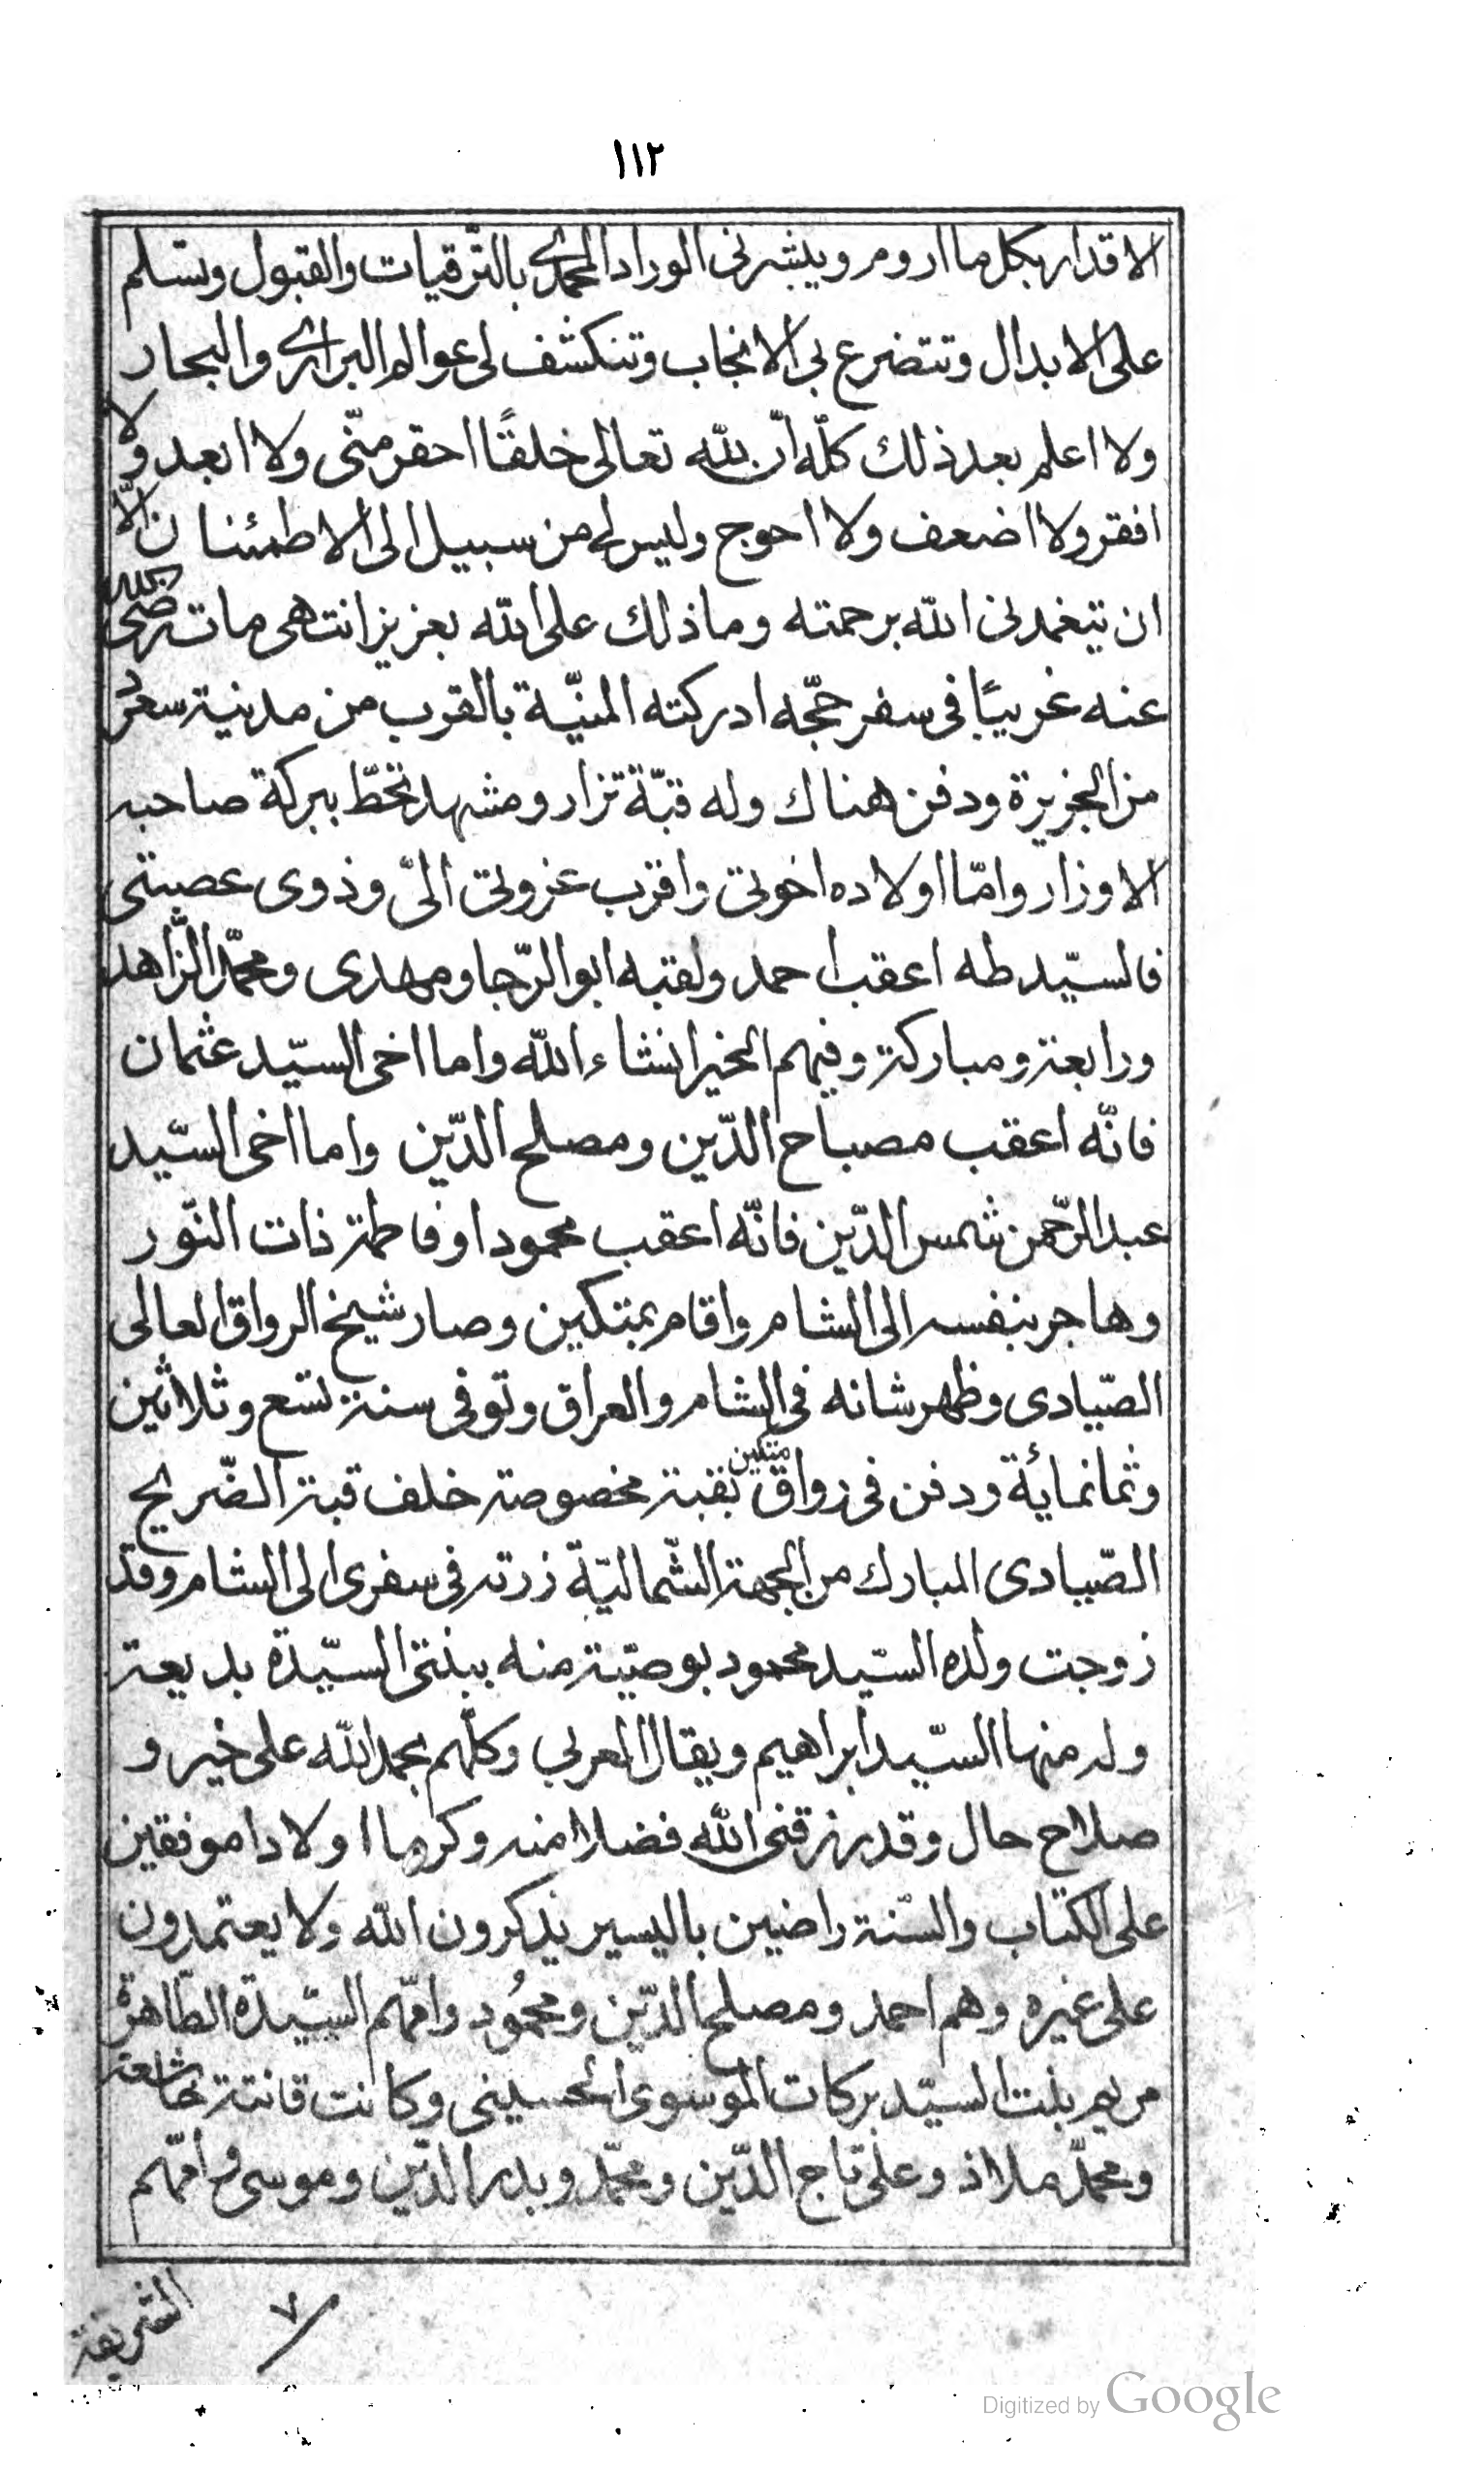 ١١٢
الاقدار بكل ما اروم ويبشرنى الوراد المحمدى بالترقيات والقبول وتسلم
على الابدال وتتضرع بى الانجاب وتنكشف لى عوالم البرارى والبحار
ولا اعلم بعد ذلك كلّه انّ لله تعالى خلقًا احقر منّى ولا ابعد ولا
افقر ولا اضعف ولا احوج وليس لى من سبيل الى الاطمئنان الّا
ان يتغمدنى الله برحمته وما ذلك على الله بعزيز انتهى مات رضى الله
عنه غريبًا فى سفر حجّه ادركته المنيّة بالقرب من مدينة سعرد
من الجزيرة ودفن هناك وله قبّة تزار ومشهد تحطّ ببركة صاحبه
الاوزار وامّا اولاده اخوتى واقرب عزوتى الىّ وذوى عصبتى
فالسيّد طه اعقب احمد ولقبه ابو الرّجا ومهدى ومحمّد الزّاهد
ورابعة ومباركة وفيهم الخير انشاء الله واما اخى السيّد عثمان
فانّه اعقب مصباح الدّين ومصلح الدّين واما اخى السيّد
عبد الرّحمن شمس الدّين فانّه اعقب محمودا وفاطمة ذات النّور
وهاجر بنفسه الى الشام واقام بمتكين وصار شيخ الرواق العالى
الصّيادى وظهر شانه فى الشام والعراق وتوفى سنة تسع وثلاثين
وثمانمائة ودفن فى رواق متكين بقبة مخصوصة خلف قبة الضّريح
الصّيادى المبارك من الجهة الشّماليّة زرته فى سفرى الى الشام وقد
زوجت ولده السيّد محمود بوصيّة منه ببنتى السيّدة بديعة
وله منها السيّد ابراهيم ويقال العربى وكلّهم بحمد الله على خير و
صلاح حال وقد رزقنى الله فضلا منه وكرما اولادا موفقين
على الكتاب والسّنة راضين باليسير يذكرون الله ولا يعتمدون
على غيره وهم احمد ومصلح الدّين ومحمُود وامّهم السيّدة الطّاهرة
مريم بنت السيّد بركات الموسوى الحسينى وكانت قانتة خاشعة
ومحمّد ملاذ وعلى تاج الدّين ومحمّد وبدر الدّين وموسى وامّهم
الشريفة
٧
Digitized by Google